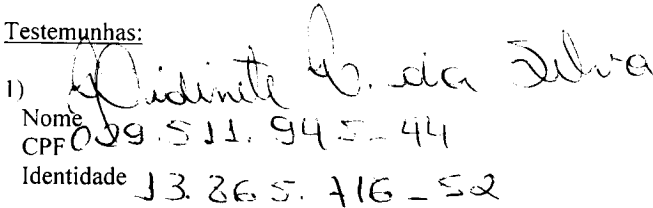 Testemunhas:
1) da Silva
Nome
CPF 029.511.945-44
Identidade 13.265.716-52